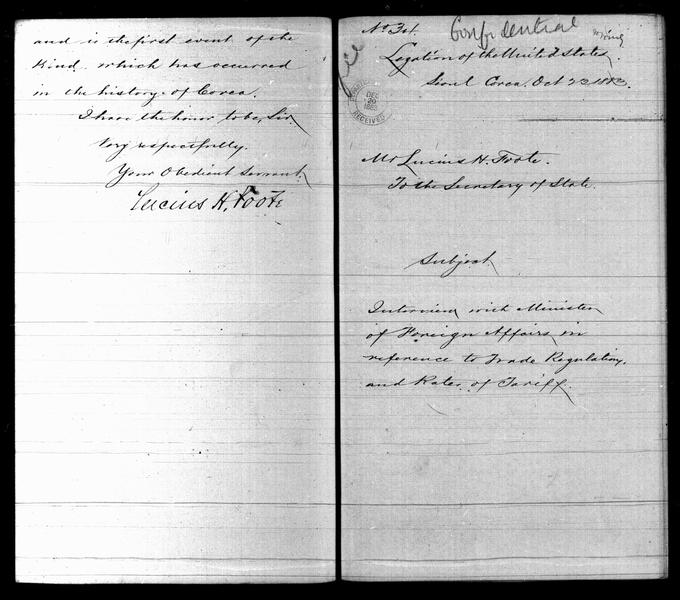 and is the first event of the
kind which has occurred
in the history of Corea.
I have the honor to be, Sir
Very respectfully.
Your Obedient Servant
Lucius H. Foote
Confidential
file
Legation of the United States
Seoul Corea. Oct 23 1883.
DEC
26
1883
RECEIVED
Mr Lucius H. Foote.
To the Secretary of State.
Subject
Interview with Minister
of Foreign Affairs, in
reference to Trade Regulation,
and Rates of Tariff.